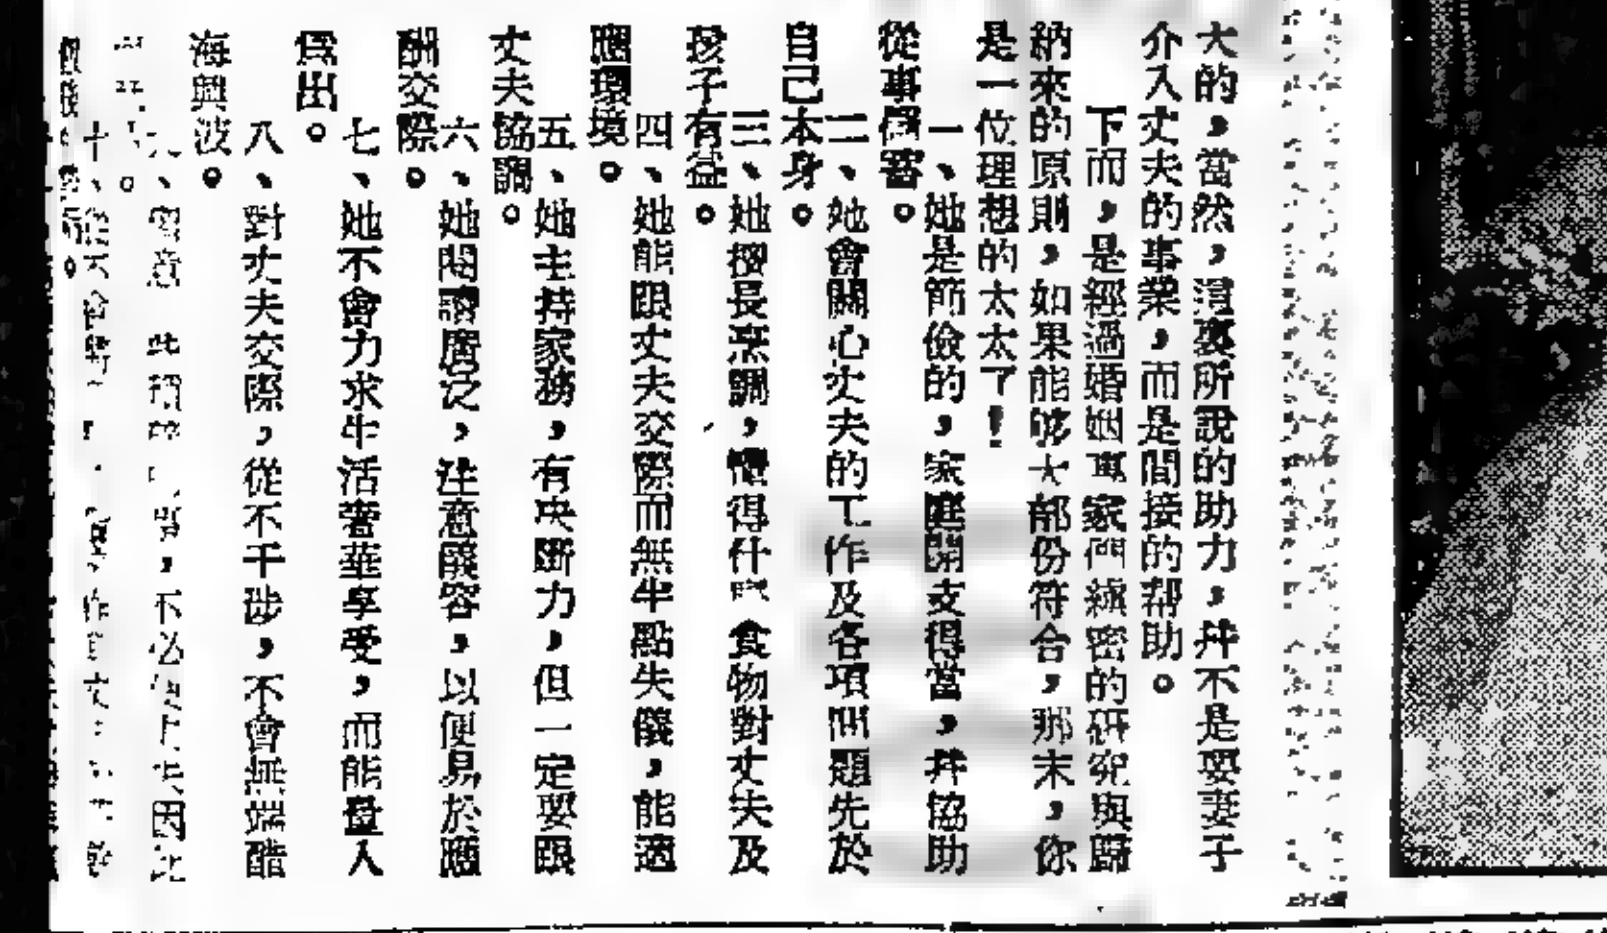 大的，當然，這裏所說的助力，幷不是要妻子
介入丈夫的事業，而是間接的帮助。
下而，是經過婚姻專家們縝密的研究與歸
納來的原則，如果能够大部份符合，那末，你
是一位理想的太太了！
一、她是節儉的，家庭開支得當，幷協助
從事儲蓄。
二、她會關心丈夫的工作及各項問題先於
自己本身。
三、她擅長烹調，懂得什麽食物對丈夫及
孩子有益。
四、她能跟丈夫交際而無半點失儀，能適
應環境。
五、她主持家務，有决斷力，但一定要跟
丈夫協調。
六、她閱讀廣泛，注意儀容，以便易於應
酬交際。
七、她不會力求生活奢華享受，而能量入
爲出。
八、對丈夫交際，從不干涉，不會無端醋
海興波。
意 此，不必 因此
十、